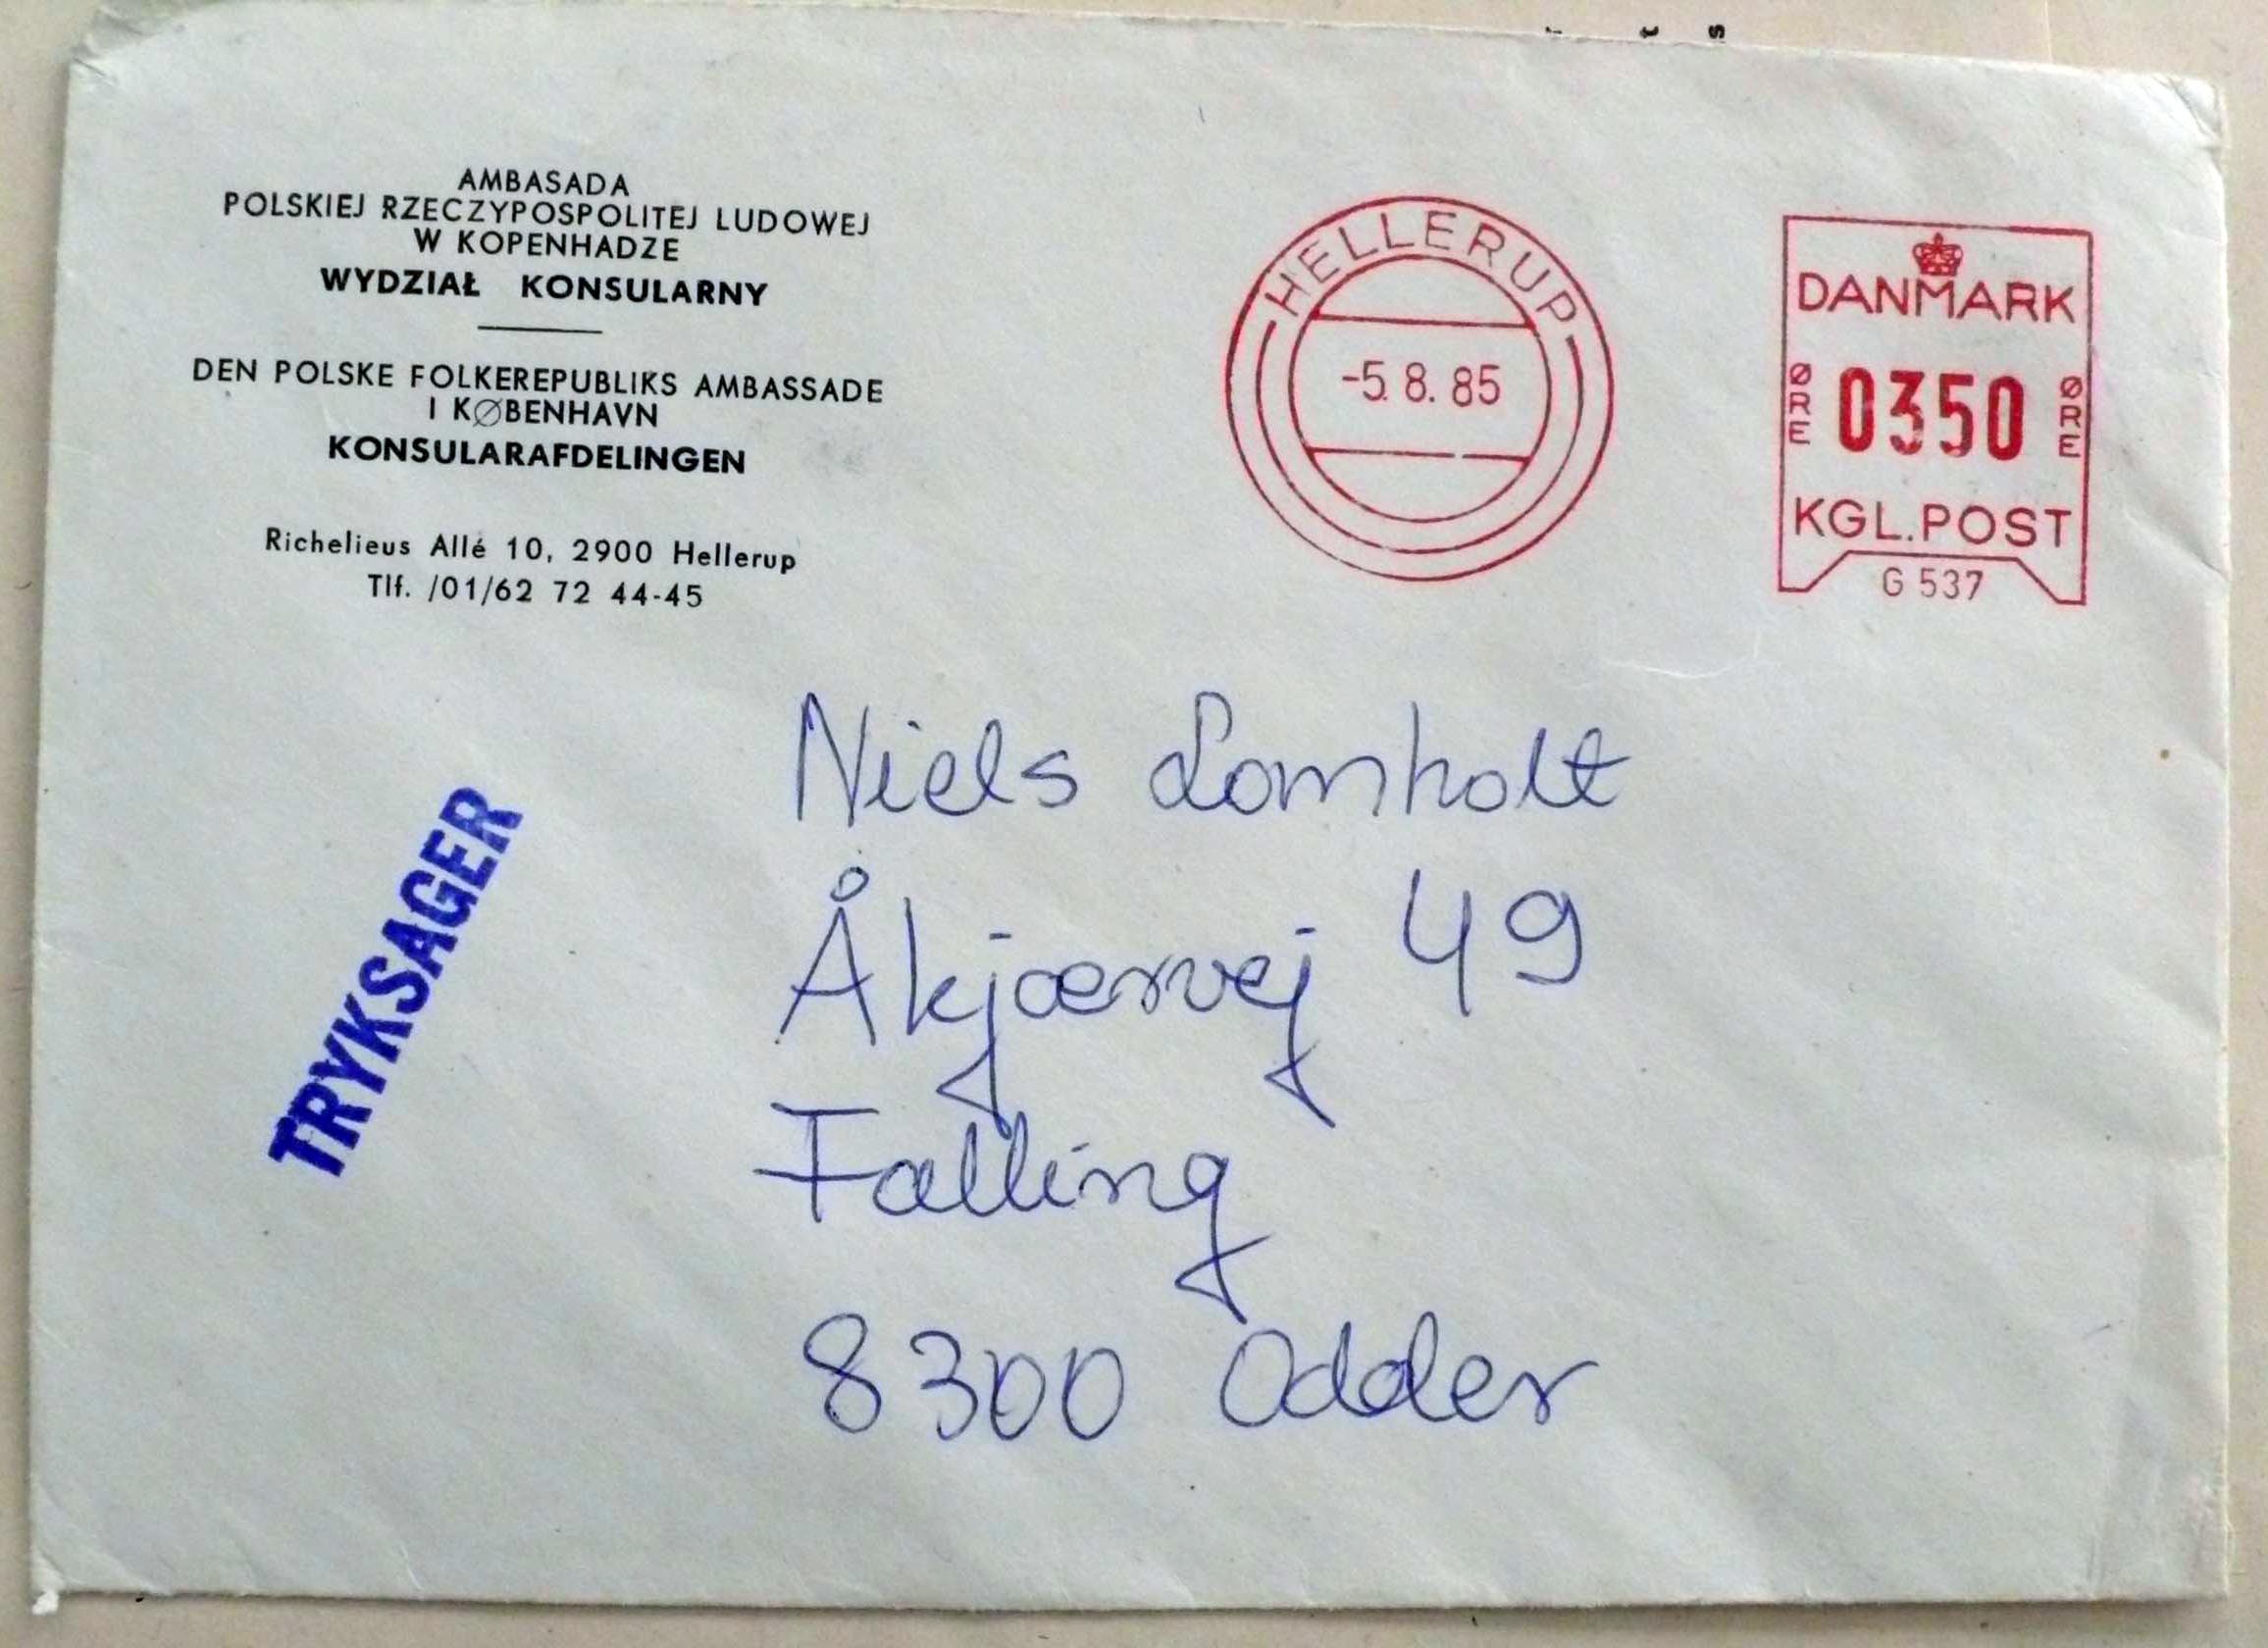 AMBASADA
POLSKIEJ RZECZYPOSPOLITEJ LUDOWEJ
W KOPENHADZE
WYDZIAŁ KONSULARNY
DEN POLSKE FOLKEREPUBLIKS AMBASSADE
I KØBENHAVN
KONSULARAFDELINGEN
Richelieus Allé 10, 2900 Hellerup
Tlf. /01/62 72 44-45
HELLERUP
-5. 8. 85
DANMARK
ØRE 0350 ØRE
KGL. POST
G 537
TRYKSAGER
Niels Lomholt
Åkjærvej 49
Falling
8300 Odder